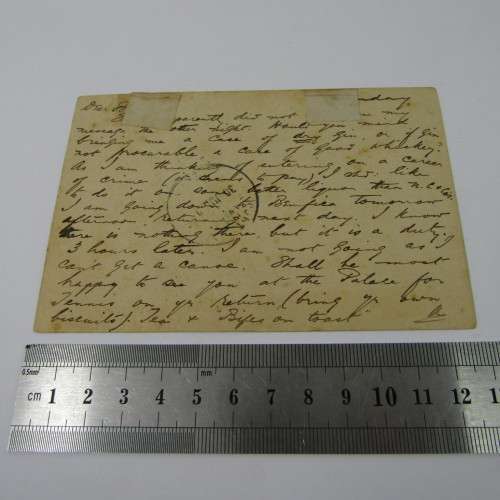 Dear
apparently did not my
message the other night. Would you mind
bringing me a case of dry Gin, or if Gin
not procurable, a case of Good whiskey?
As I am thinking of entering on a career
of crime (it seems to pay) I shd. like
to do it on some better liquor than
I am going down to tomorrow
afternoon returning next day. I know
there is nothing there but it is a duty.
3 hours later. I am not going as I
can't get a canoe. Shall be most
happy to see you at the Palace for
Tennis on yr return (bring yr own
biscuits). Tea & "Bifes on toast"
0.5mm mm
cm 1 2 3 4 5 6 7 8 9 10 11 12